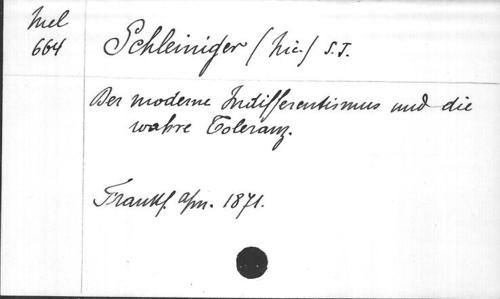 Mel
664
Schleiniger (Nic.) S.J.
Der moderne Indifferentismus und die
wahre Toleranz.
Frankf. a/m. 1871.